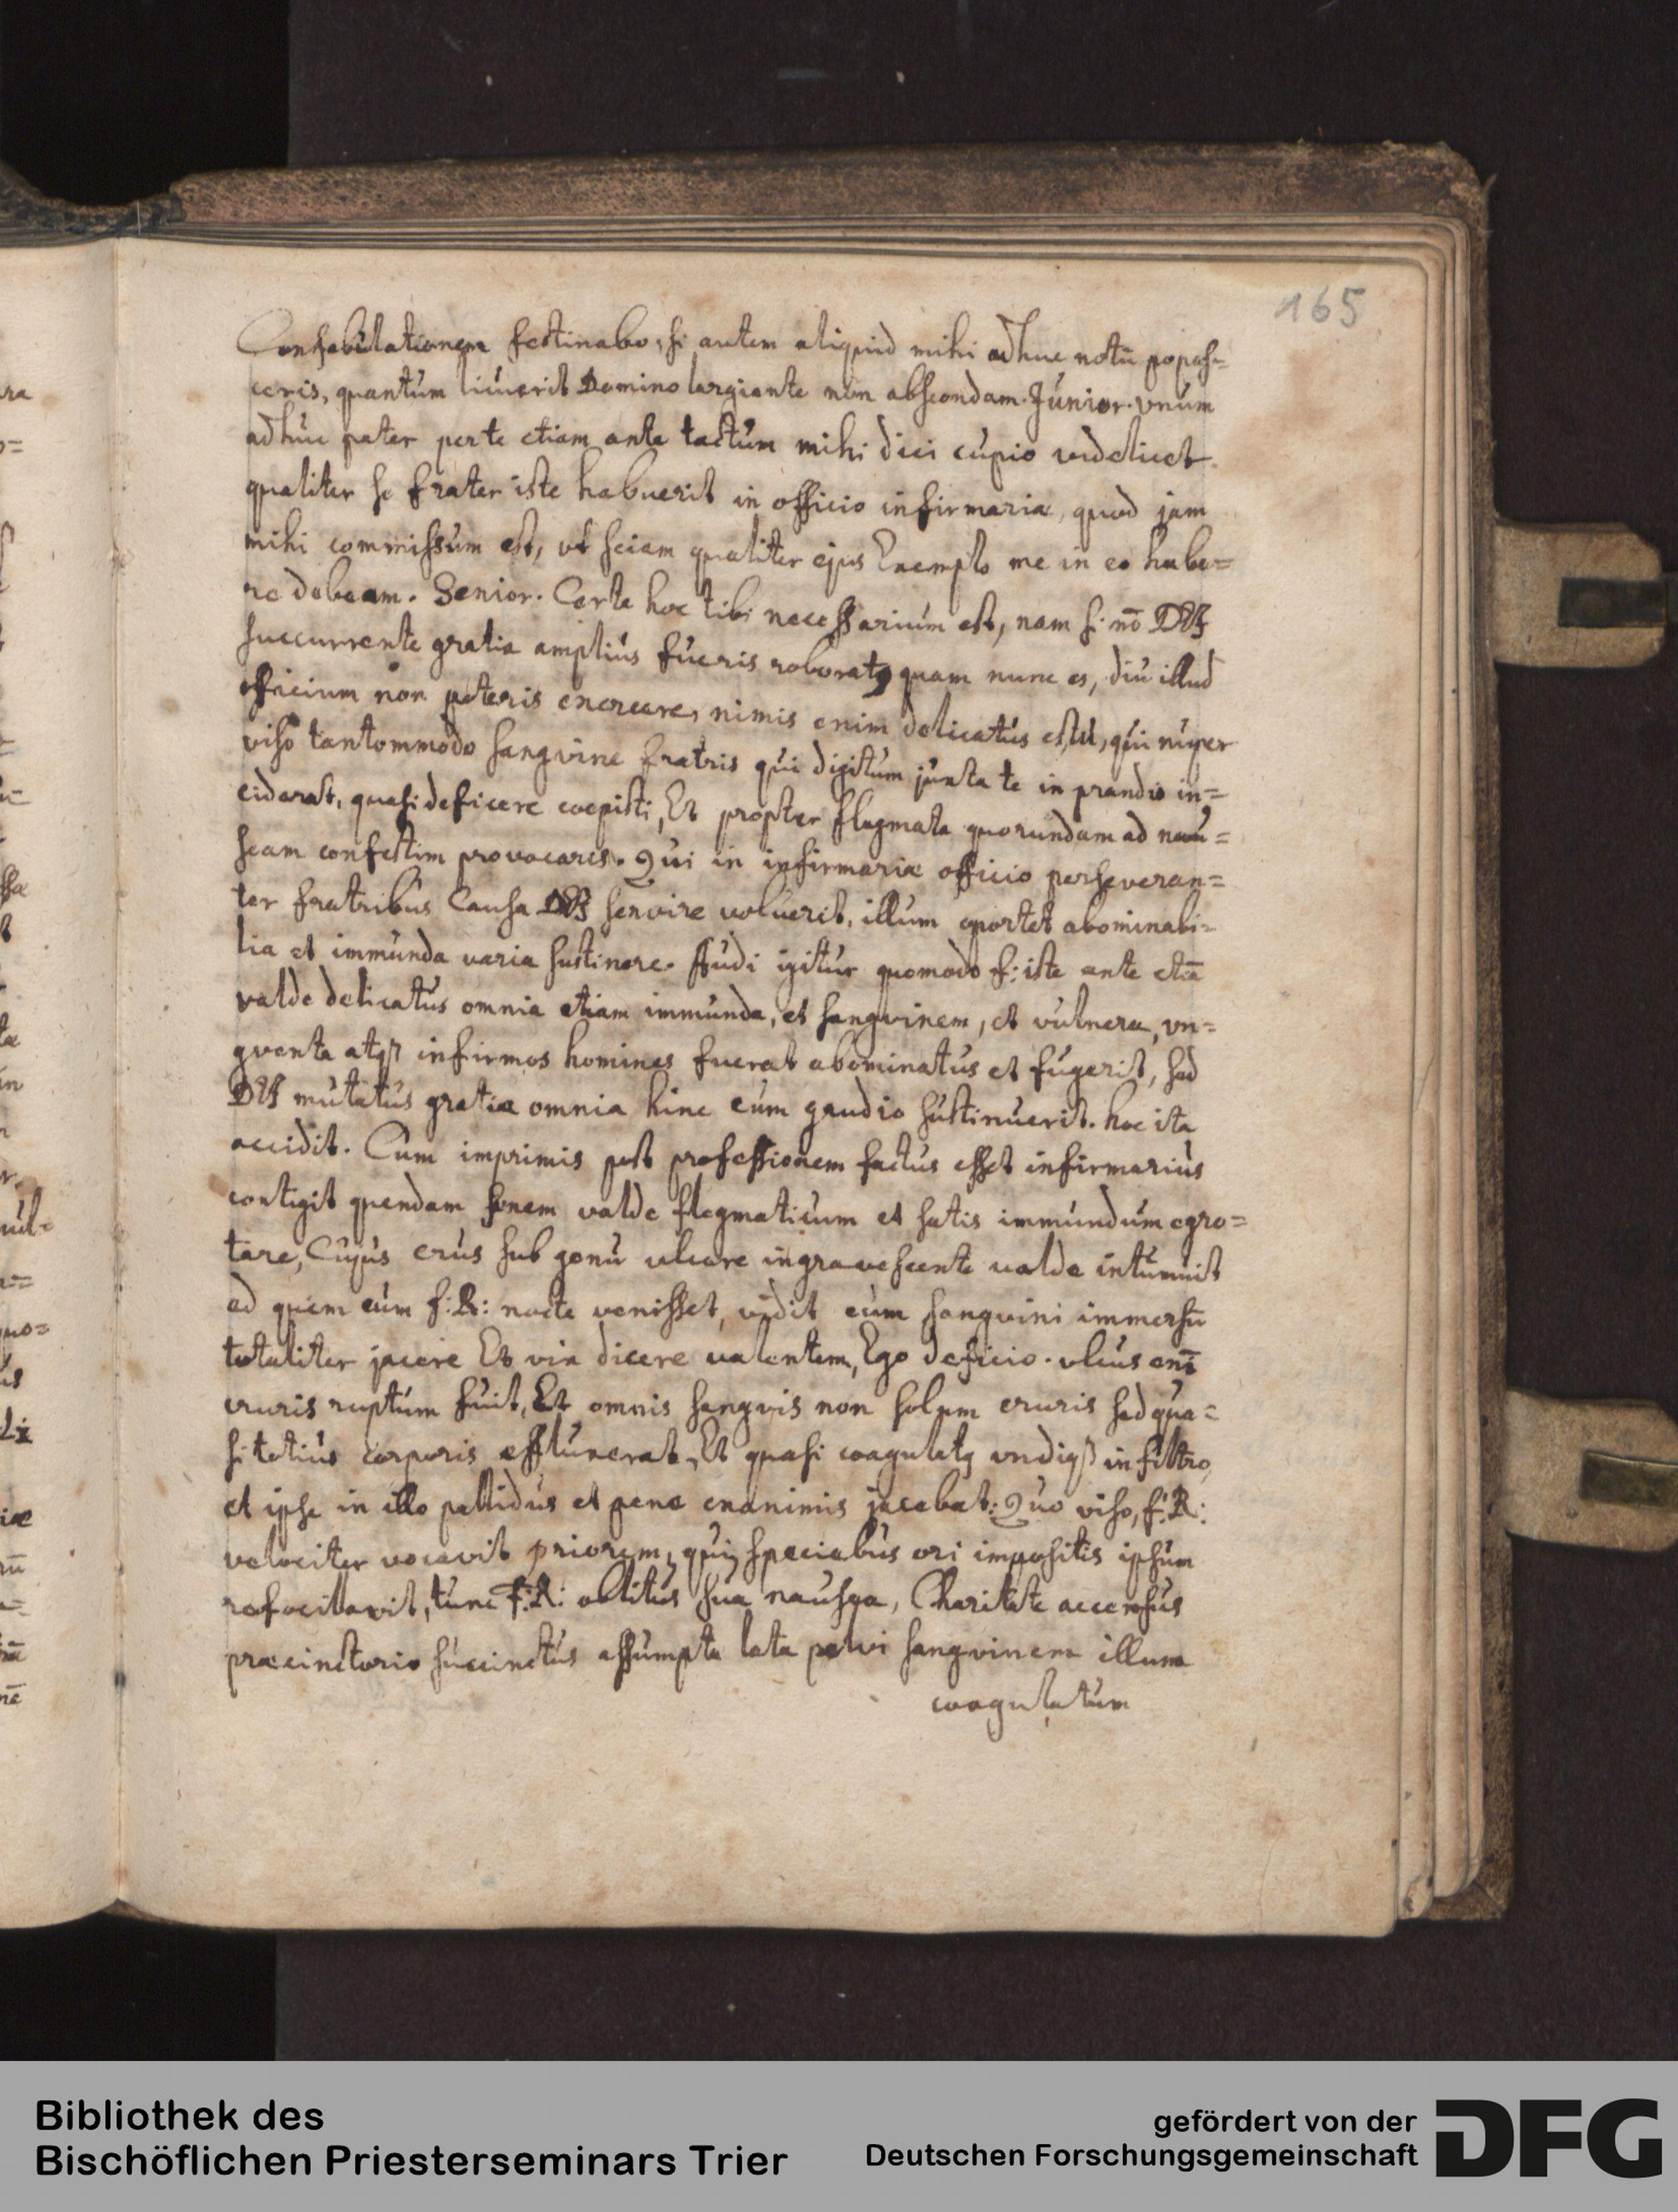 165
Confabulationem festinabo, si autem aliquid mihi adhuc notū popos=
ceris, quantum licuerit Domino largiente non abscondam. Junior. vnum
adhuc pater per te etiam ante tactum mihi dici cupio videlicet
qualiter se frater iste habuerit in officio infirmariæ, quod jam
mihi commissum est, vt sciam qualiter ejus Exemplo me in eo habe=
re debeam. Senior. Certe hoc tibi necessarium est, nam si nō
succurrente gratia amplius fueris roboratꝰ quam nunc es, diu illud
officium non poteris exercere, nimis enim delicatus es tu, qui nuper
viso tantommodo sangvine fratris qui digitum juxta te in prandio in=
ciderat, quasi deficere coepisti, Et propter flegmata quorundam ad nau=
seam confestim provocaris. Qui in infirmariæ officio perseveran=
ter fratribus Causa servire voluerit, illum oportet abominabi=
lia et immunda varia sustinere. Audi igitur quomodo f: iste ante etiā
valde delicatus omnia etiam immunda, et sangvinem, et vulnera, vn=
gventa atqꝫ infirmos homines fuerat abominatus et fugerit, sed
mutatus gratia omnia hinc cum gaudio sustinuerit. hoc ita
accidit. Cum imprimis post professionem factus esset infirmarius
contigit quendam senem valde flegmaticum et satis immundum egro=
tare, Cujus crus sub genu ulcere ingravescente valde intumuit
ad quem cum f: R: nocte venisset, vidit eum sangvini immersū
totaliter jacere Et vix dicere valentem, Ego deficio. vlcus enī
cruris ruptum fuit, Et omnis sangvis non solum cruris sed qua=
si totius corporis effluxerat, Et quasi coagulatꝰ vndiqꝫ in filtro,
et ipse in illo pallidus et pene exanimis jacebat: Quo viso, f: R:
velociter vocavit priorem, qui speciebus ori impositis ipsum
refocillavit, tunc F: R: oblitus suæ nauseæ, Charitate accensus
præcinctorio succinctus assumpta lata pelvi sangvinem illum
coagulatum
Bibliothek des
Bischöflichen Priesterseminars Trier
gefördert von der
Deutschen Forschungsgemeinschaft
DFG